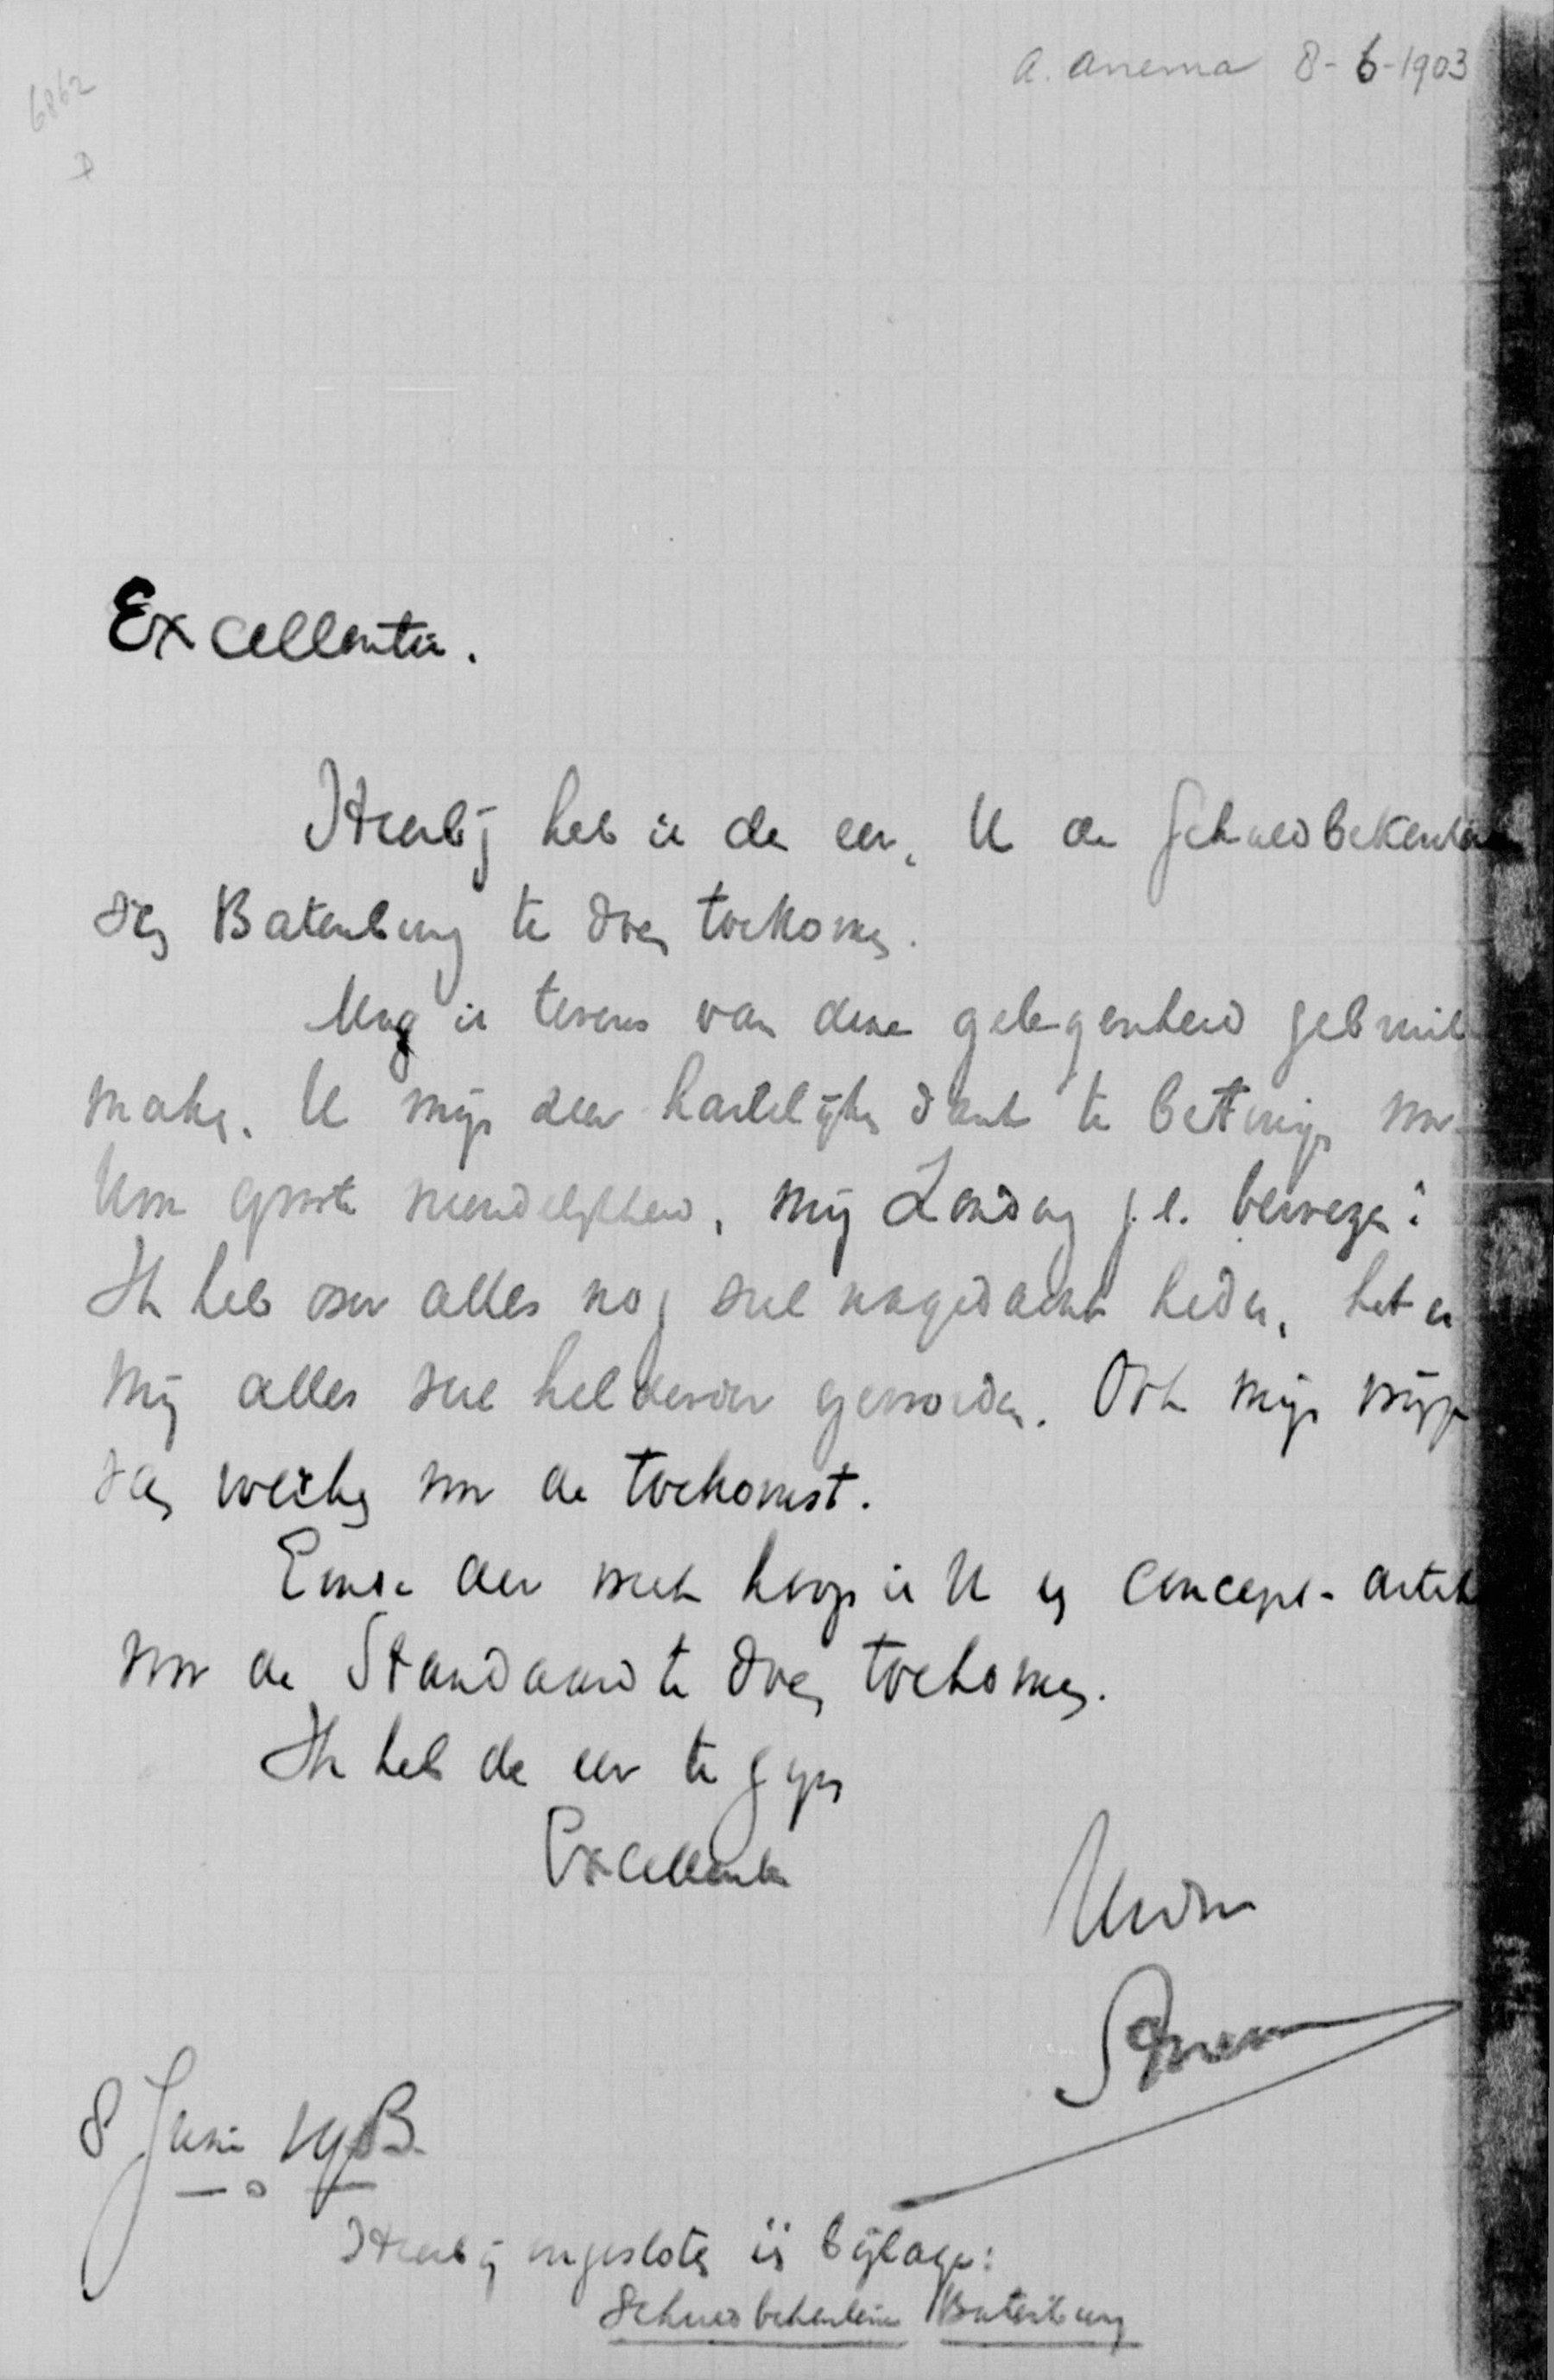 A. Anema 8-6-1903
6862
Excellentie.
Hierbij heb ik de eer, U de Schuldbekentenis
Batenburg te doen toekomen.
Mag ik tevens van deze gelegenheid gebruik
maken, U mijn zeer hartelijken dank te betuigen voor
Uwe groote vriendelijkheid, mij Zondag j.l. bewezen?
Ik heb over alles nog veel nagedacht heden, het is
mij alles veel helderder geworden. Ook mijn
voor de toekomst.
Einde der week hoop ik U een concept-artikel
voor de Standaard te doen toekomen.
Ik heb de eer te zijn
Excellentie
Uwdw
Anema
8 Juni 1903.
Hierbij ingesloten is bijlage:
Schuldbekentenis Batenburg